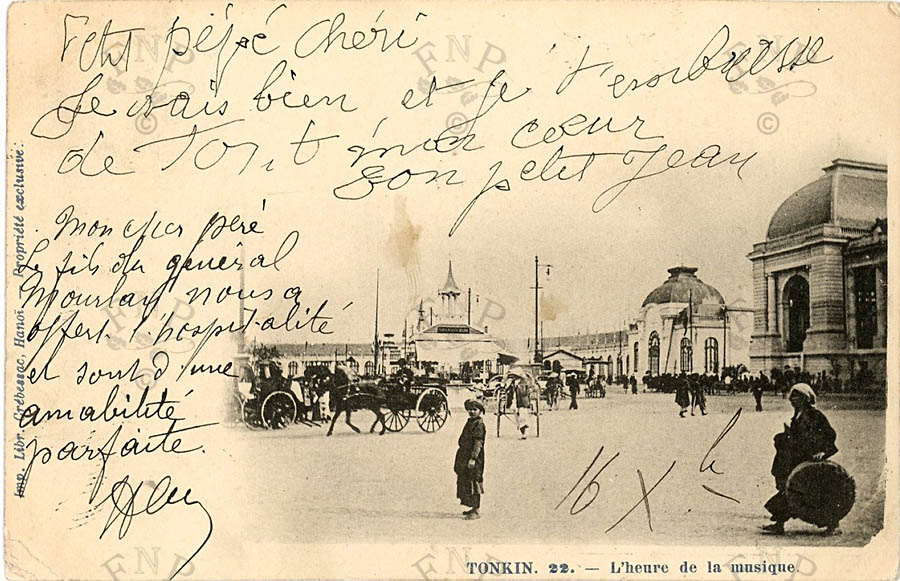 Petit pépé chéri
Je vais bien et je t'embrasse
de Tout mon cœur
Ton petit Jean
Mon cher père
Le fils du général
Mourlan nous a
offert l'hospitalité
et sont d'une
amabilité
parfaite.
16 X h
Imp. Libr. Crébessac, Hanoï. — Propriété exclusive.
TONKIN. 22. — L'heure de la musique
FNP
©